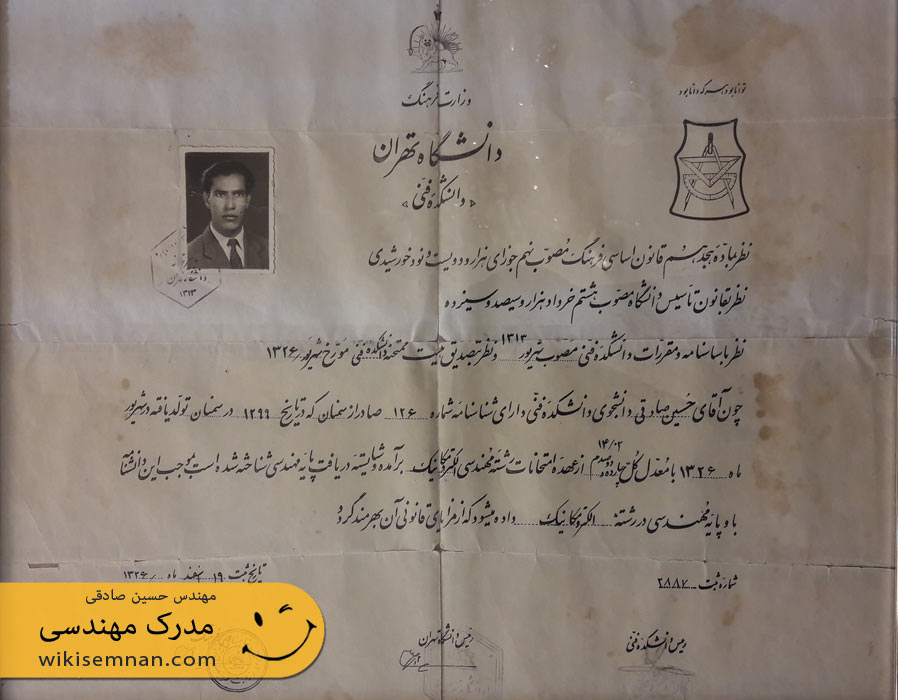 توانا بود هر که دانا بود
وزارت فرهنگ
دانشگاه تهران
«دانشکده فنی»
نظر بماده هیجدهم قانون اساسی فرهنگ مصوب نهم جوزای هزار و دویست و نود خورشیدی
نظر بقانون تأسیس دانشگاه مصوب هشتم خرداد هزار و سیصد و سیزده
نظر باساسنامه و مقررات دانشکده فنی مصوب شهریور ۱۳۱۳ و نظر بتصدیق هیئت ممتحنه دانشکده فنی مورخ شهریور ۱۳۲۶
چون آقای حسین صادقی دانشجوی دانشکده فنی دارای شناسنامه شماره ۱۲۶ صادر از سمنان که در تاریخ ۱۲۹۹ در سمنان تولد یافته در شهریور
ماه ۱۳۲۶ با معدل کل چهارده و دو صدم ۱۴/۰۲ از عهده امتحانات رشته مهندسی الکترومکانیک برآمده و شایسته دریافت پایه مهندسی شناخته شده است بموجب این دانشنامه
باو پایه مهندسی در رشته الکترومکانیک داده میشود که از مزایای قانونی آن بهره‌مند گردد
شماره ثبت ۲۸۸۷
تاریخ ثبت ۱۹ اسفند ماه ۱۳۲۶
رئیس دانشکده فنی
رئیس دانشگاه تهران
دانشگاه تهران
۱۳۱۳
مهندس حسین صادقی
مدرک مهندسی
wikisemnan.com